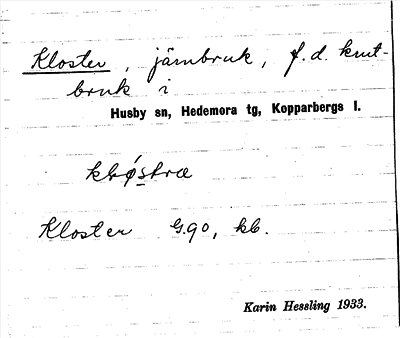 Kloster, järnbruk, f.d. krut-
bruk i
Husby sn, Hedemora tg, Kopparbergs l.
Kloster G.90, kb.
Karin Hessling 1933.